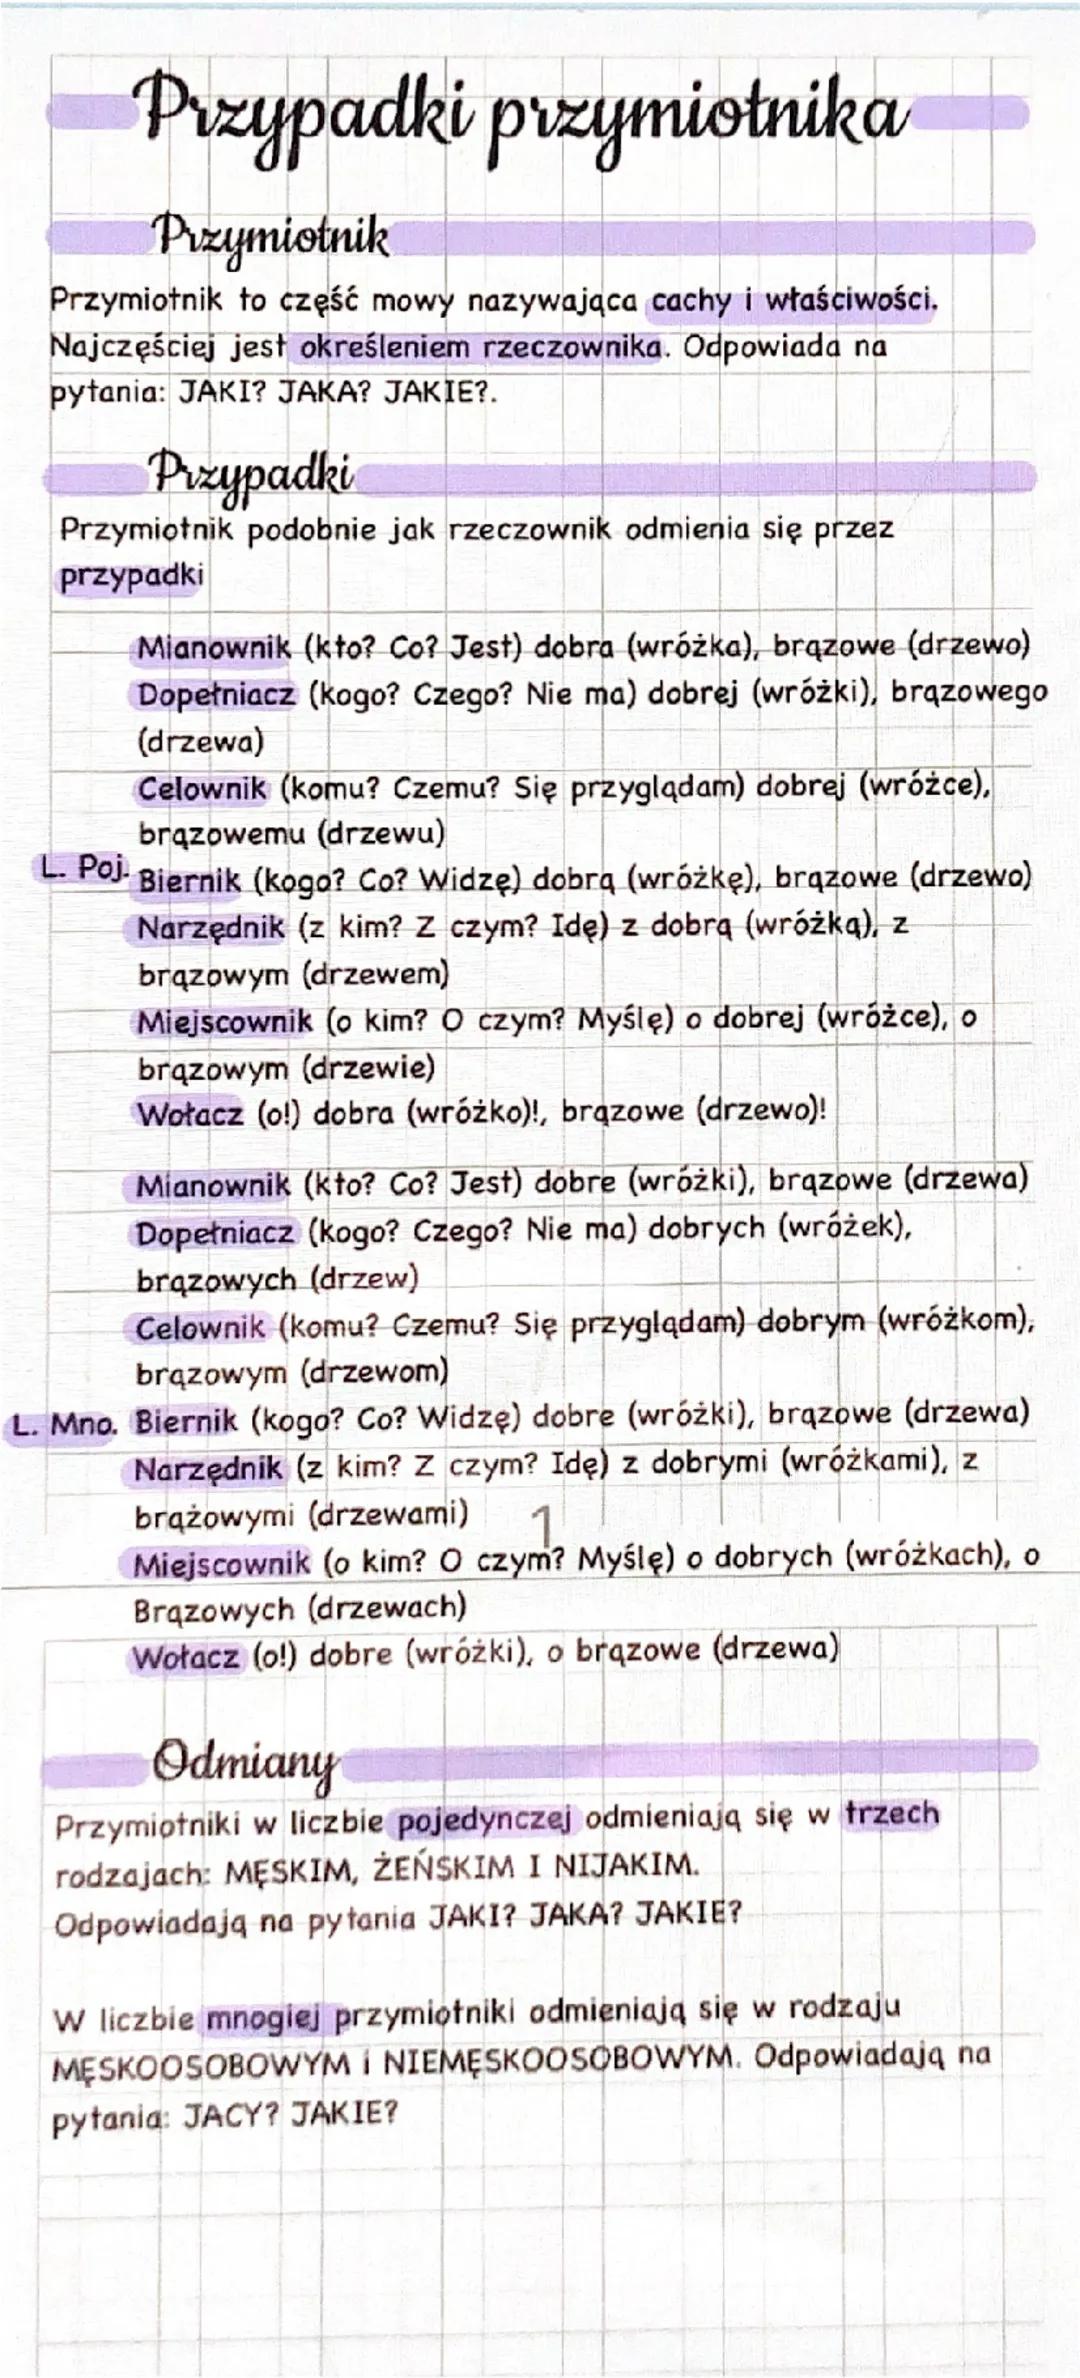 Przypadki przymiotnika
Przymiotnik
Przymiotnik to część mowy nazywająca cachy i właściwości.
Najczęściej jest określeniem rzeczownika. Odpowiada na
pytania: JAKI? JAKA? JAKIE?.
Przypadki
Przymiotnik podobnie jak rzeczownik odmienia się przez
przypadki
Mianownik (kto? Co? Jest) dobra (wróżka), brązowe (drzewo)
Dopełniacz (kogo? Czego? Nie ma) dobrej (wróżki), brązowego
(drzewa)
Celownik (komu? Czemu? Się przyglądam) dobrej (wróżce),
brązowemu (drzewu)
L. Poj. Biernik (kogo? Co? Widzę) dobrą (wróżkę), brązowe (drzewo)
Narzędnik (z kim? Z czym? Idę) z dobrą (wróżką), z
brązowym (drzewem)
Miejscownik (o kim? O czym? Myślę) o dobrej (wróżce), o
brązowym (drzewie)
Wołacz (o!) dobra (wróżko)!, brązowe (drzewo)!
Mianownik (kto? Co? Jest) dobre (wróżki), brązowe (drzewa)
Dopełniacz (kogo? Czego? Nie ma) dobrych (wróżek),
brązowych (drzew)
Celownik (komu? Czemu? Się przyglądam) dobrym (wróżkom),
brązowym (drzewom)
L. Mno. Biernik (kogo? Co? Widzę) dobre (wróżki), brązowe (drzewa)
Narzędnik (z kim? Z czym? Idę) z dobrymi (wróżkami), z
brążowymi (drzewami)
1
Miejscownik (o kim? O czym? Myślę) o dobrych (wróżkach), o
Brązowych (drzewach)
Wołacz (o!) dobre (wróżki), o brązowe (drzewa)
Odmiany
Przymiotniki w liczbie pojedynczej odmieniają się w trzech
rodzajach: MĘSKIM, ŻEŃSKIM I NIJAKIM.
Odpowiadają na pytania JAKI? JAKA? JAKIE?
W liczbie mnogiej przymiotniki odmieniają się w rodzaju
MĘSKOOSOBOWYM i NIEMĘSKOOSOBOWYM. Odpowiadają na
pytania: JACY? JAKIE?